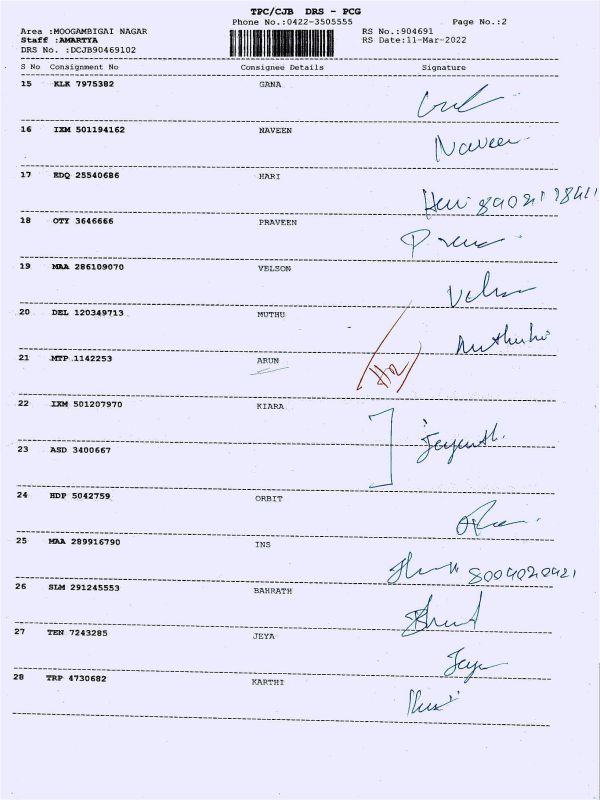 TPC/CJB DRS - PCG
Phone No.:0422-3505555 Page No.:2
Area :MOOGAMBIGAI NAGAR RS No.:904691
Staff :AMARTYA RS Date:11-Mar-2022
DRS No. :DCJB90469102
S No Consignment No Consignee Details Signature
15 KLK 7975382 GANA
16 IXM 501194162 NAVEEN Naveen
17 EDQ 25540686 HARI Hari
18 OTY 3646666 PRAVEEN
19 MAA 286109070 VELSON Velson
20 DEL 120349713 MUTHU
21 MTP 1142253 ARUN
22 IXM 501207970 KIARA
23 ASD 3400667
24 HDP 5042759 ORBIT
25 MAA 289916790 INS
26 SLM 291245553 BAHRATH
27 TEN 7243285 JEYA Jeya
28 TRP 4730682 KARTHI